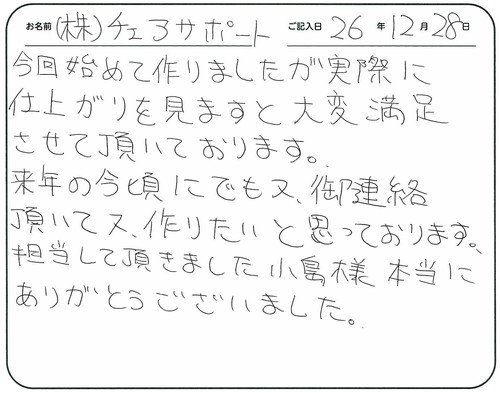 お名前 (株)チェアサポート ご記入日 26年12月28日
今回始めて作りましたが実際に
仕上がりを見ますと大変満足
させて頂いております。
来年の今頃にでも又、御連絡
頂いて又、作りたいと思っております。
担当して頂きました小島様 本当に
ありがとうございました。